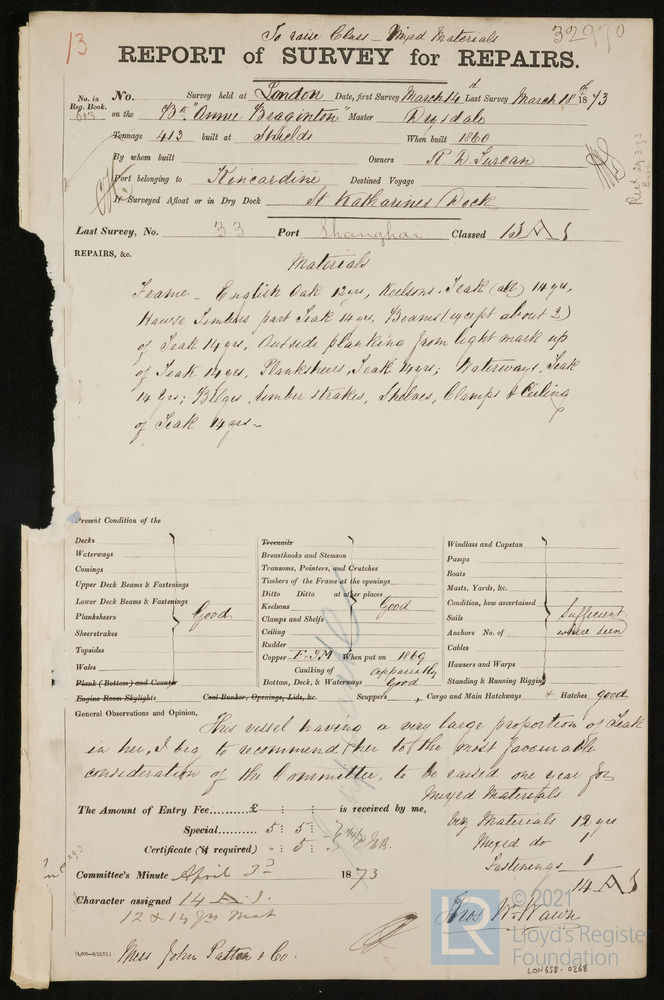 To raise Class - Mixed Materials
32970
13
REPORT of SURVEY for REPAIRS.
No. in Reg. Book. 613
No. Survey held at London Date, first Survey March 14th Last Survey March 18th 1873
on the Bk "Annie Braginton" Master Drysdale
Tonnage 413 built at Shields When built 1860
By whom built Owners R D Turcan
Port belonging to Kincardine Destined Voyage
If Surveyed Afloat or in Dry Dock St Katharines Dock
Last Survey, No. 33 Port Shanghai Classed 13 A 1
REPAIRS, &c.
Materials
Frame - English Oak 12 yrs, Keelsons, Teak (all) 14 yrs,
Hawse Timbers part Teak 14 yrs, Beams (except about 2)
of Teak 14 yrs, Outside planking from light mark up
of Teak 14 yrs, Planksheers, Teak 14 yrs; Waterways, Teak
14 yrs; Bilges, limber strakes, Shelves, Clamps & Ceiling
of Teak 14 yrs -
Present Condition of the
Decks
Waterways
Comings
Upper Deck Beams & Fastenings
Lower Deck Beams & Fastenings
Planksheers Good
Sheerstrakes
Topsides
Wales
Plank (Bottom) and Counter
Engine Room Skylights
Treenails
Breasthooks and Stemson
Transoms, Pointers, and Crutches
Timbers of the Frame at the openings
Ditto Ditto at other places
Keelsons Good
Clamps and Shelfs
Ceiling
Rudder
Copper F. Y M When put on 1869
Caulking of apparently
Bottom, Deck, & Waterways Good
Windlass and Capstan
Pumps
Boats
Masts, Yards, &c.
Condition, how ascertained
Sails Sufficient
Anchors No. of where seen
Cables
Hawsers and Warps
Standing & Running Rigging
Coal Bunker, Openings, Lids, &c. Scuppers , Cargo and Main Hatchways 4 Hatches good
General Observations and Opinion, This vessel having a very large proportion of Teak
in her, I beg to recommend her to the most favourable
consideration of the Committee, to be raised one year for
Mixed Materials
The Amount of Entry Fee £ : : is received by me,
Special 5 : 5 : -
Certificate (if required) - : 5 : -
Orig Materials 12 yrs
Mixed do 1
Fastenings 1
14 A 1
Committee's Minute April 3rd 1873
Character assigned 14 A. 1.
12 & 14 yrs Mat
Thos Wm Wawn
Mess John Patton & Co.
© 2021
LR
Lloyd's Register
Foundation
LON658-0268